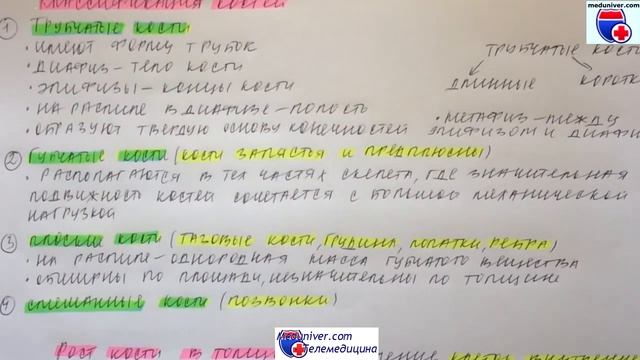 КЛАССИФИКАЦИЯ КОСТЕЙ
meduniver.com
① ТРУБЧАТЫЕ КОСТИ
• ИМЕЮТ ФОРМУ ТРУБОК
• ДИАФИЗ – ТЕЛО КОСТИ
• ЭПИФИЗЫ – КОНЦЫ КОСТИ
• НА РАСПИЛЕ В ДИАФИЗЕ – ПОЛОСТЬ
• ОБРАЗУЮТ ТВЕРДУЮ ОСНОВУ КОНЕЧНОСТЕЙ
ТРУБЧАТЫЕ КОСТИ
ДЛИННЫЕ КОРОТК
• МЕТАФИЗ – МЕЖДУ
ЭПИФИЗОМ И ДИАФИ
② ГУБЧАТЫЕ КОСТИ (КОСТИ ЗАПЯСТЬЯ И ПРЕДПЛЮСНЫ)
• РАСПОЛАГАЮТСЯ В ТЕХ ЧАСТЯХ СКЕЛЕТА, ГДЕ ЗНАЧИТЕЛЬНАЯ
ПОДВИЖНОСТЬ КОСТЕЙ СОЧЕТАЕТСЯ С БОЛЬШОЙ МЕХАНИЧЕСКОЙ
НАГРУЗКОЙ
③ ПЛОСКИЕ КОСТИ (ТАЗОВЫЕ КОСТИ, ГРУДИНА, ЛОПАТКИ, РЕБРА)
• НА РАСПИЛЕ – ОДНОРОДНАЯ МАССА ГУБЧАТОГО ВЕЩЕСТВА
• ОБШИРНЫ ПО ПЛОЩАДИ, НЕЗНАЧИТЕЛЬНЫ ПО ТОЛЩИНЕ
④ СМЕШАННЫЕ КОСТИ (ПОЗВОНКИ)
Meduniver.com
Телемедицина
РОСТ КОСТИ В ТОЛЩ КЛЕТОК